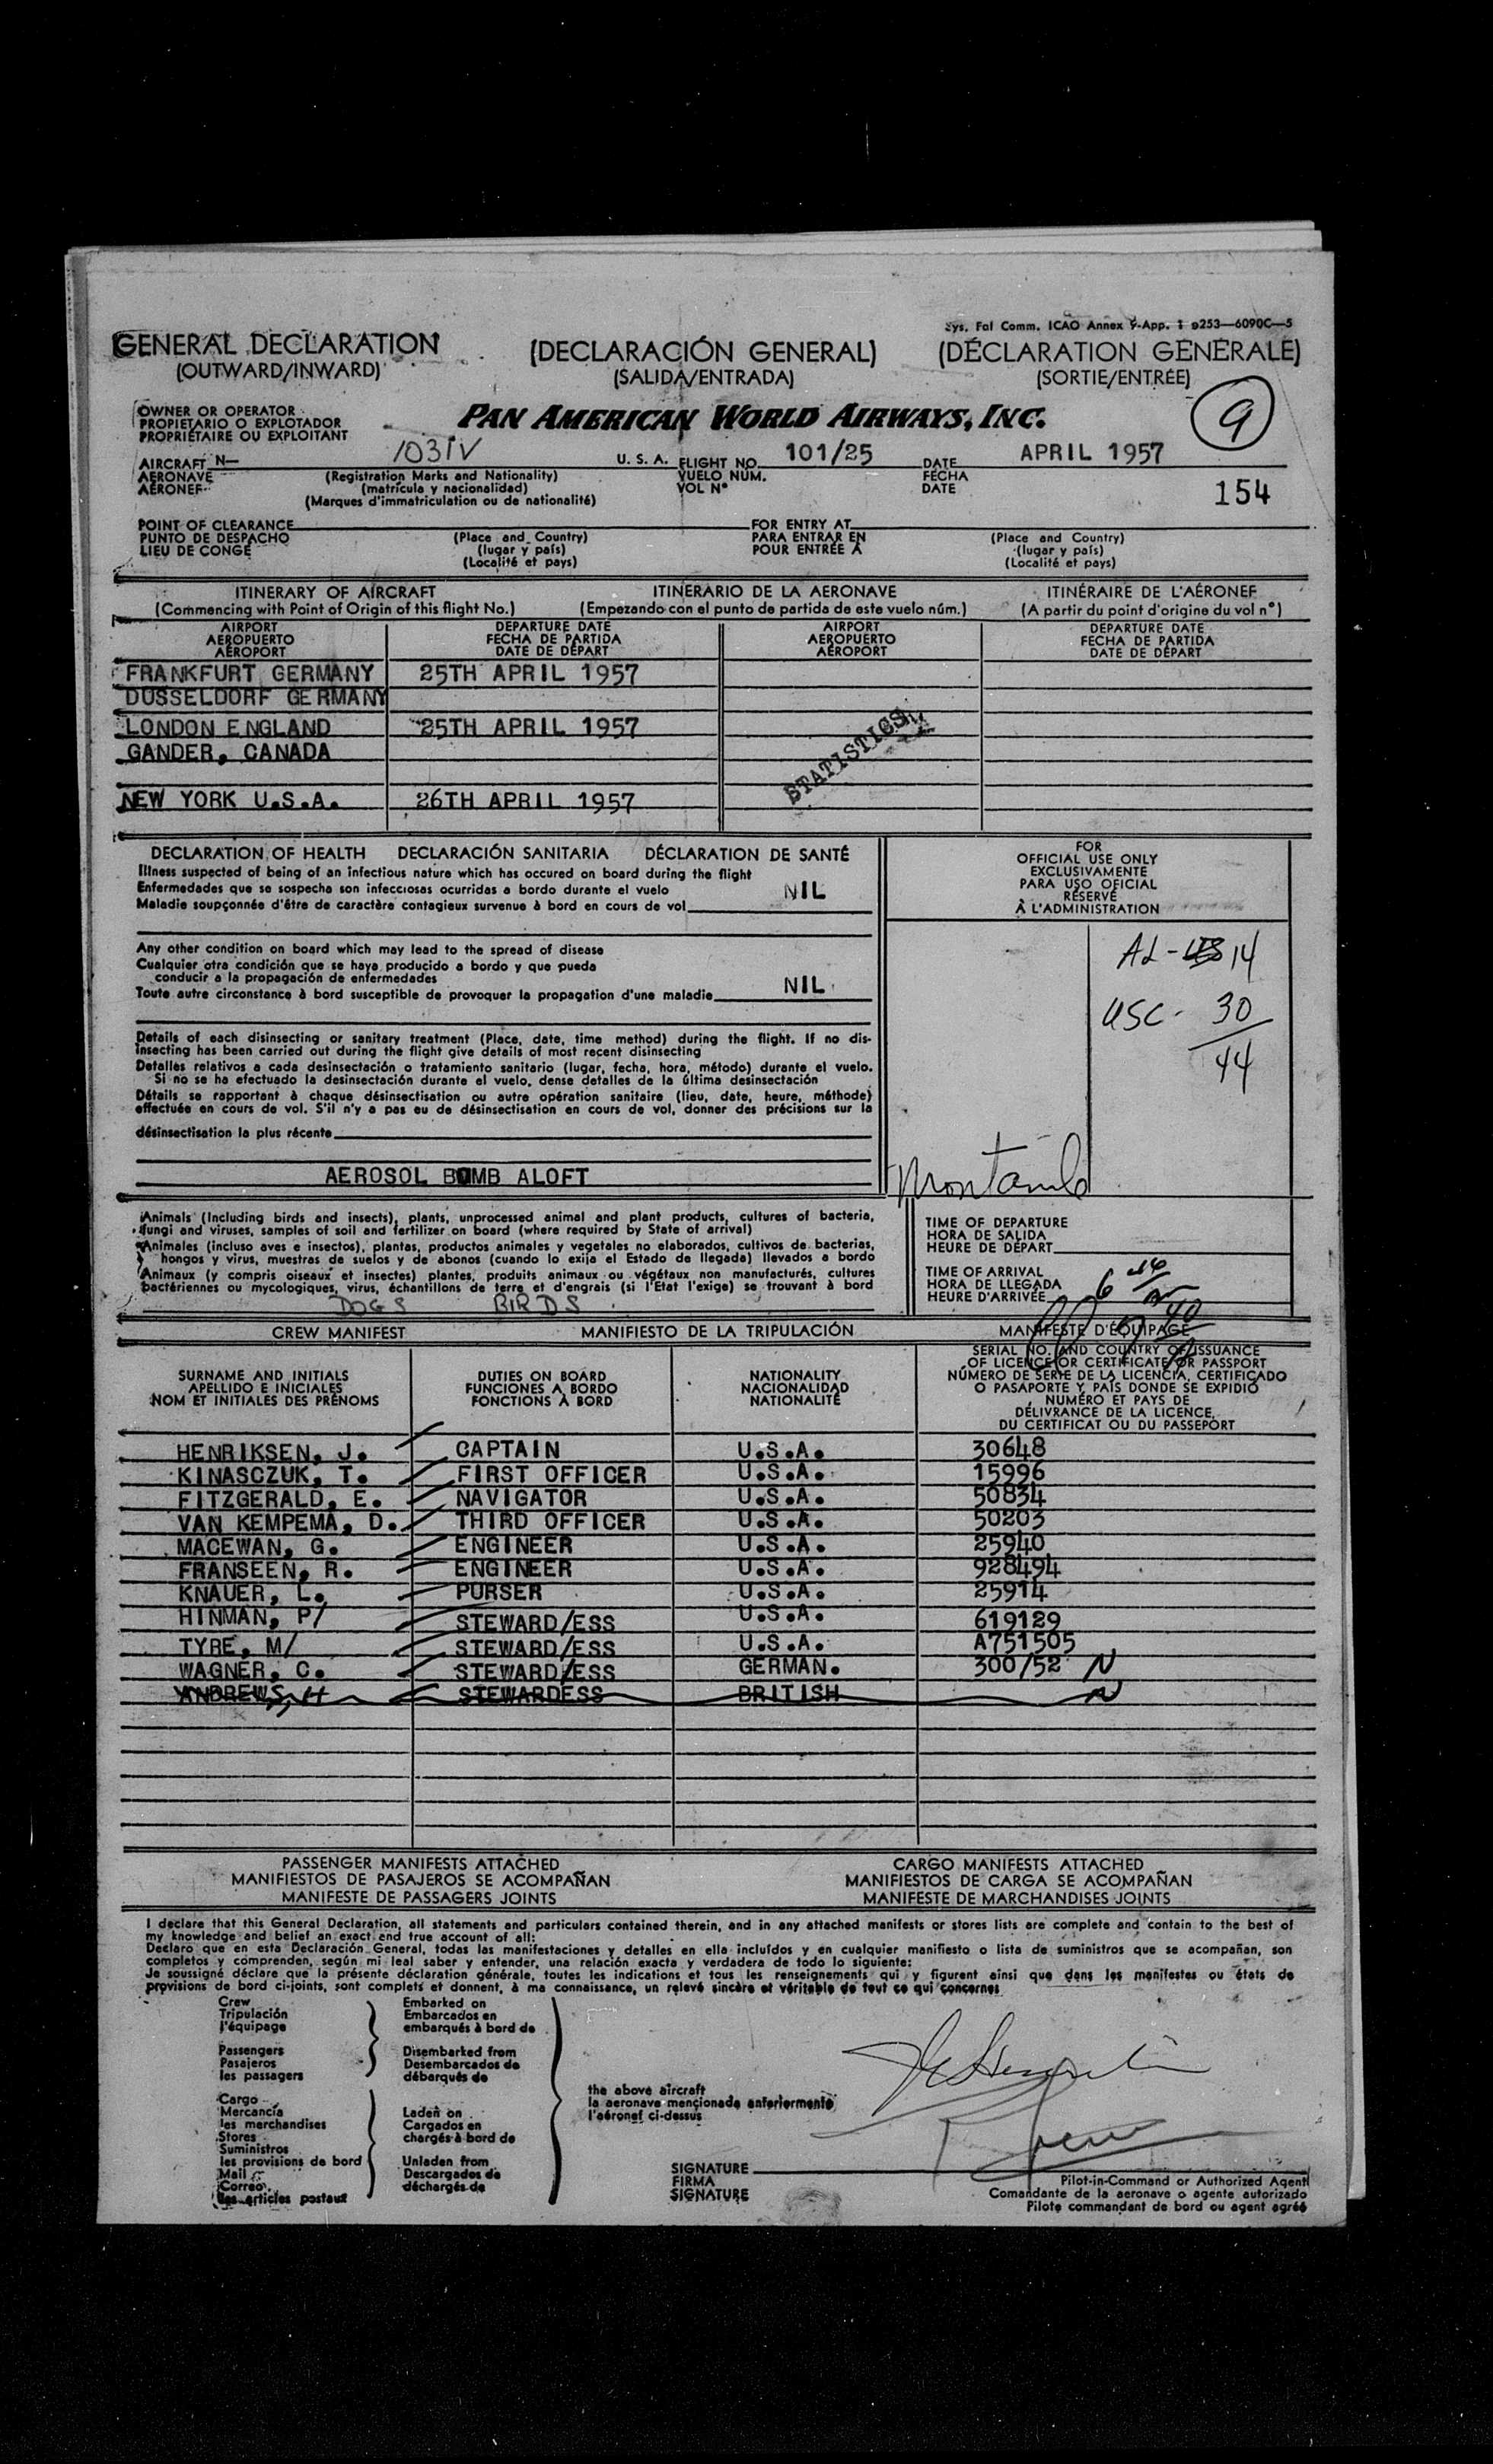 Sys. Fal Comm. ICAO Annex 9-App. 1 9253—6090C—5
GENERAL DECLARATION (DECLARACIÓN GENERAL) (DÉCLARATION GENERALE)
(OUTWARD/INWARD) (SALIDA/ENTRADA) (SORTIE/ENTRÉE)
9
OWNER OR OPERATOR
PROPIETARIO O EXPLOTADOR
PROPRIÉTAIRE OU EXPLOITANT
PAN AMERICAN WORLD AIRWAYS, INC.
AIRCRAFT N— 1031V U. S. A. FLIGHT NO. 101/25 DATE APRIL 1957
AERONAVE (Registration Marks and Nationality) VUELO NUM. FECHA
AÉRONEF (matrícula y nacionalidad) VOL Nº DATE 154
(Marques d'immatriculation ou de nationalité)
POINT OF CLEARANCE FOR ENTRY AT
PUNTO DE DESPACHO (Place and Country) PARA ENTRAR EN (Place and Country)
LIEU DE CONGÉ (lugar y país) POUR ENTRÉE À (lugar y país)
(Localité et pays) (Localité et pays)
ITINERARY OF AIRCRAFT ITINERARIO DE LA AERONAVE ITINÉRAIRE DE L'AÉRONEF
(Commencing with Point of Origin of this flight No.) (Empezando con el punto de partida de este vuelo núm.) (A partir du point d'origine du vol nº)
AIRPORT DEPARTURE DATE AIRPORT DEPARTURE DATE
AEROPUERTO FECHA DE PARTIDA AEROPUERTO FECHA DE PARTIDA
AÉROPORT DATE DE DÉPART AÉROPORT DATE DE DÉPART
FRANKFURT GERMANY 25TH APRIL 1957
DUSSELDORF GERMANY
LONDON ENGLAND 25TH APRIL 1957
GANDER, CANADA
STATISTICS
NEW YORK U.S.A. 26TH APRIL 1957
DECLARATION OF HEALTH DECLARACIÓN SANITARIA DÉCLARATION DE SANTÉ
Illness suspected of being of an infectious nature which has occured on board during the flight
Enfermedades que se sospecha son infecciosas ocurridas a bordo durante el vuelo NIL
Maladie soupçonnée d'être de caractère contagieux survenue à bord en cours de vol
FOR
OFFICIAL USE ONLY
EXCLUSIVAMENTE
PARA USO OFICIAL
RÉSERVÉ
À L'ADMINISTRATION
Any other condition on board which may lead to the spread of disease
Cualquier otra condición que se haya producido a bordo y que pueda
conducir a la propagación de enfermedades NIL
Toute autre circonstance à bord susceptible de provoquer la propagation d'une maladie
AL- 14
USC- 30
44
Details of each disinsecting or sanitary treatment (Place, date, time method) during the flight. If no dis-
insecting has been carried out during the flight give details of most recent disinsecting
Detalles relativos a cada desinsectación o tratamiento sanitario (lugar, fecha, hora, método) durante el vuelo.
Si no se ha efectuado la desinsectación durante el vuelo, dense detalles de la última desinsectación
Détails se rapportant à chaque désinsectisation ou autre opération sanitaire (lieu, date, heure, méthode)
effectuée en cours de vol. S'il n'y a pas eu de désinsectisation en cours de vol, donner des précisions sur la
désinsectisation la plus récente
AEROSOL BOMB ALOFT
Animals (Including birds and insects), plants, unprocessed animal and plant products, cultures of bacteria,
fungi and viruses, samples of soil and fertilizer on board (where required by State of arrival)
Animales (incluso aves e insectos), plantas, productos animales y vegetales no elaborados, cultivos de bacterias,
hongos y virus, muestras de suelos y de abonos (cuando lo exija el Estado de llegada) llevados a bordo
Animaux (y compris oiseaux et insectes) plantes, produits animaux ou végétaux non manufacturés, cultures
bactériennes ou mycologiques, virus, échantillons de terre et d'engrais (si l'Etat l'exige) se trouvant à bord
DOGS BIRDS
TIME OF DEPARTURE
HORA DE SALIDA
HEURE DE DÉPART
TIME OF ARRIVAL
HORA DE LLEGADA 6
HEURE D'ARRIVÉE
CREW MANIFEST MANIFIESTO DE LA TRIPULACIÓN MANIFESTE D'ÉQUIPAGE
SURNAME AND INITIALS
APELLIDO E INICIALES
NOM ET INITIALES DES PRÉNOMS
DUTIES ON BOARD
FUNCIONES A BORDO
FONCTIONS À BORD
NATIONALITY
NACIONALIDAD
NATIONALITÉ
SERIAL NO. AND COUNTRY OF ISSUANCE
OF LICENCE OR CERTIFICATE OR PASSPORT
NÚMERO DE SERIE DE LA LICENCIA, CERTIFICADO
O PASAPORTE Y PAÍS DONDE SE EXPIDIÓ
NUMÉRO ET PAYS DE
DÉLIVRANCE DE LA LICENCE,
DU CERTIFICAT OU DU PASSEPORT
HENRIKSEN, J. CAPTAIN U.S.A. 30648
KINASCZUK, T. FIRST OFFICER U.S.A. 15996
FITZGERALD, E. NAVIGATOR U.S.A. 50834
VAN KEMPEMA, D. THIRD OFFICER U.S.A. 50203
MACEWAN, G. ENGINEER U.S.A. 25940
FRANSEEN, R. ENGINEER U.S.A. 928494
KNAUER, L. PURSER U.S.A. 25914
HINMAN, P/ STEWARD/ESS U.S.A. 619129
TYRE, M/ STEWARD/ESS U.S.A. A751505
WAGNER, C. STEWARD/ESS GERMAN. 300/52 N
ANDREWS, H STEWARDESS BRITISH N
PASSENGER MANIFESTS ATTACHED CARGO MANIFESTS ATTACHED
MANIFIESTOS DE PASAJEROS SE ACOMPAÑAN MANIFIESTOS DE CARGA SE ACOMPAÑAN
MANIFESTE DE PASSAGERS JOINTS MANIFESTE DE MARCHANDISES JOINTS
I declare that this General Declaration, all statements and particulars contained therein, and in any attached manifests or stores lists are complete and contain to the best of
my knowledge and belief an exact and true account of all:
Declaro que en esta Declaración General, todas las manifestaciones y detalles en ella incluídos y en cualquier manifiesto o lista de suministros que se acompañan, son
completos y comprenden, según mi leal saber y entender, una relación exacta y verdadera de todo lo siguiente:
Je soussigné déclare que la présente déclaration générale, toutes les indications et tous les renseignements qui y figurent ainsi que dans les manifestes ou états de
provisions de bord ci-joints, sont complets et donnent, à ma connaissance, un relevé sincère et véritable de tout ce qui concernes
Crew Embarked on
Tripulación Embarcados en
l'équipage embarqués à bord de
Passengers Disembarked from
Pasajeros Desembarcados de
les passagers débarqués de
the above aircraft
la aeronave mencionada anteriormente
l'aéronef ci-dessus
Cargo
Mercancía Laden on
les merchandises Cargados en
Stores chargés à bord de
Suministros
les provisions de bord Unladen from
Mail Descargados de
Correo déchargés de
les articles postaux
SIGNATURE
FIRMA
SIGNATURE
Pilot-in-Command or Authorized Agent
Comandante de la aeronave o agente autorizado
Pilote commandant de bord ou agent agréé